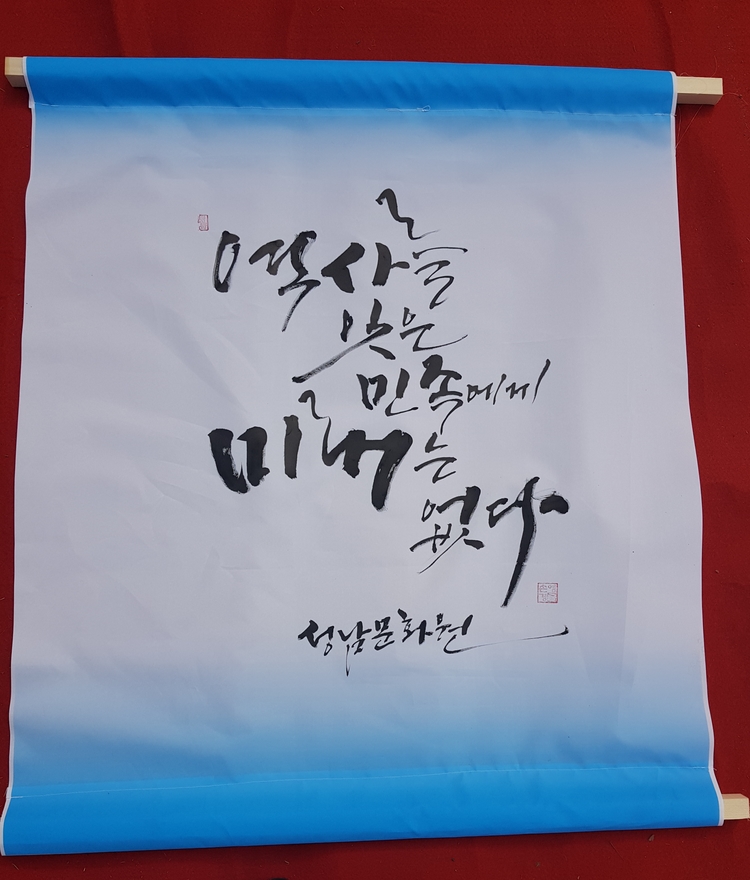 역사를
잊은
민족에게
미래는
없다
성남문화원